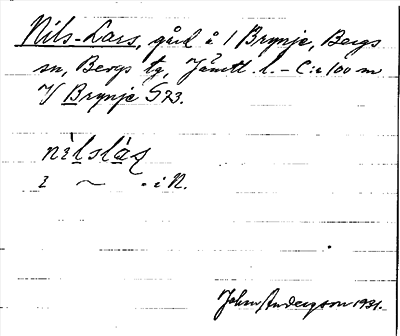 Nils-Lars, gård å 1 Brynje, Bergs
sn, Bergs tg, Jämtl. l. – C:a 100 m
V Brynje S23.
nìlslás
i ~ . i N.
John Anderson 1931.